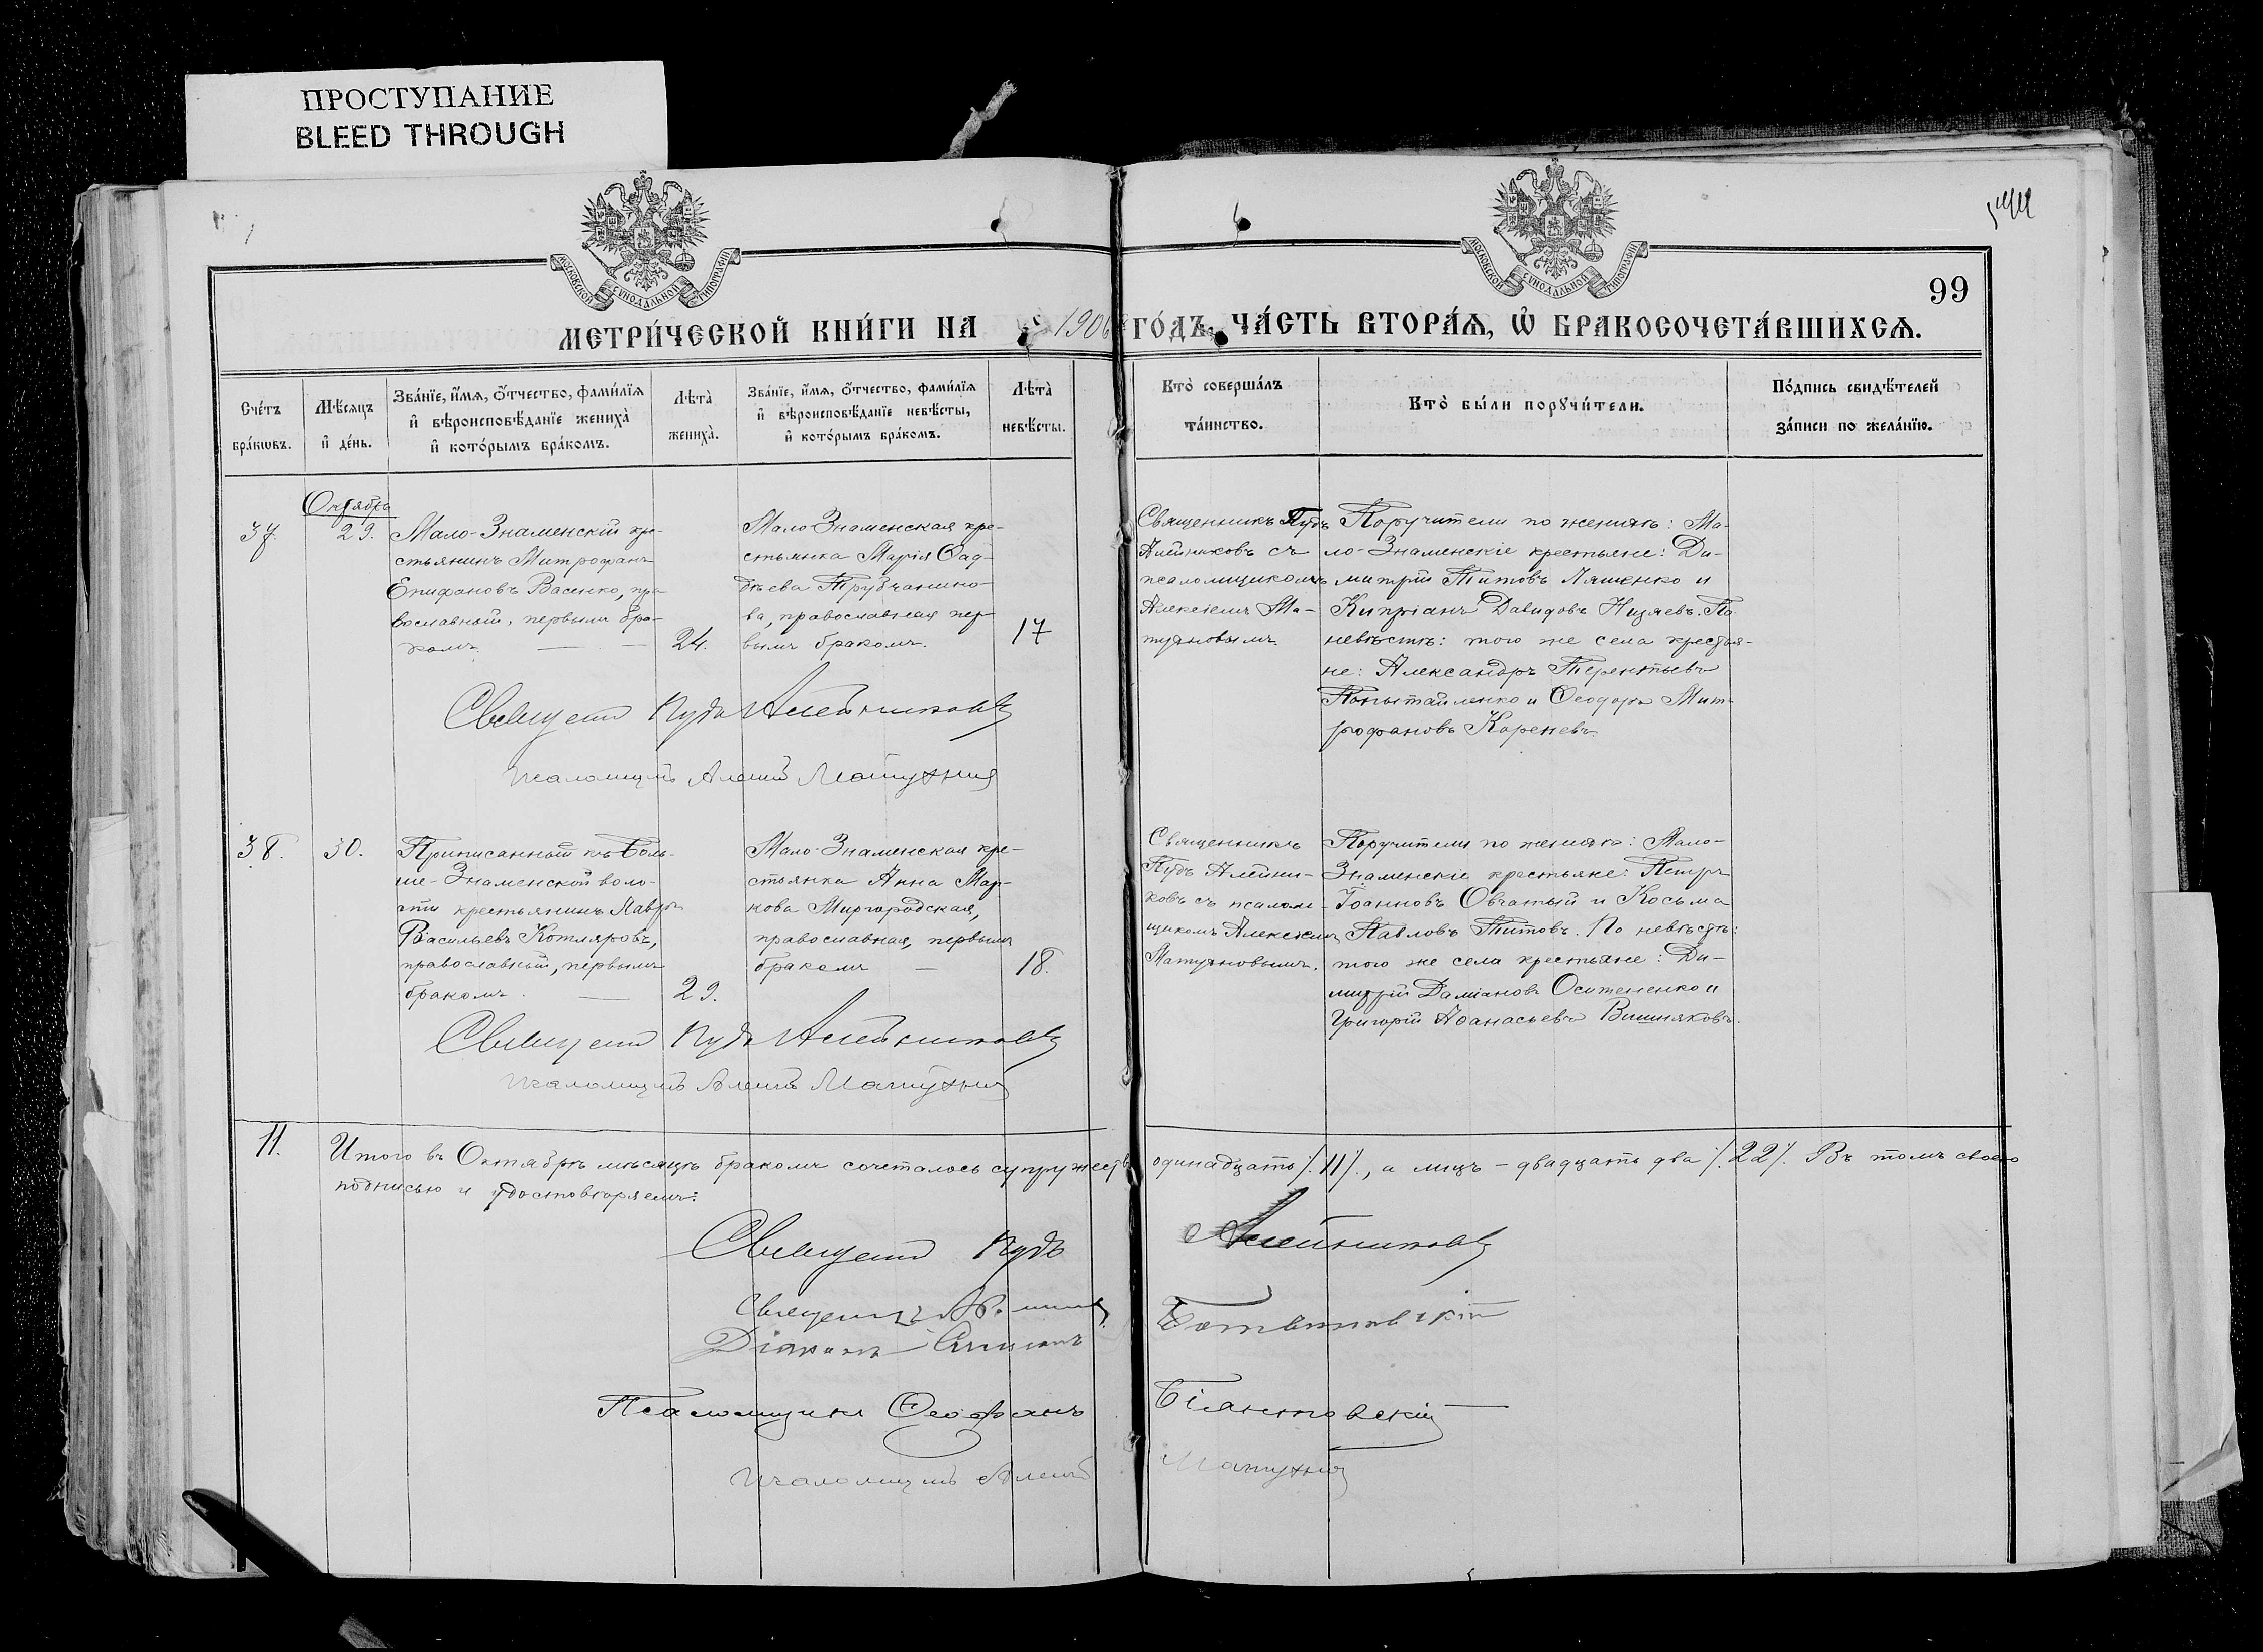 ПРОСТУПАНИЕ
BLEED THROUGH
99
МОСКОВСКОЙ СѴНОДАЛЬНОЙ ТИПОГРАФІИ
МОСКОВСКОЙ СѴНОДАЛЬНОЙ ТИПОГРАФІИ
МЕТРИ́ЧЕСКОЙ КНИ́ГИ НА 1906 ГО́ДЪ, ЧА́СТЬ ВТОРА́Ѧ, Ѡ҆ БРАКОСОЧЕТА́ВШИХСѦ.
Сче́тъ бра́кѡвъ.
Мѣ́сѧцъ и҆ де́нь.
Зва́нїе, и҆́мѧ, ѻ҆́тчество, фами́лїѧ и҆ вѣроисповѣ́данїе жениха̀ и҆ кото́рымъ бра́комъ.
Лѣ́та̀ жениха̀.
Зва́нїе, и҆́мѧ, ѻ҆́тчество, фами́лїѧ и҆ вѣроисповѣ́данїе невѣ́сты, и҆ кото́рымъ бра́комъ.
Лѣ́та̀ невѣ́сты.
Кто̀ соверша́лъ та́инство.
Кто̀ бы́ли порꙋчи́тели.
По́дпись свидѣ́телей за́писи по жела́нїю.
37.
Октября
29.
Мало-Знаменскій кре-
стьянинъ Митрофанъ
Епифановъ Васенко, пра
вославный, первымъ бра-
комъ.
24.
Мало-Знаменская кре-
стьянка Марія Ѳад-
дѣева Трубчанино-
ва, православная пер-
вымъ бракомъ.
17
Священникъ Пудъ
Алейниковъ съ
псаломщикомъ
Алексіемъ Ма-
тушновымъ.
Поручители по женихѣ: Ма-
ло-Знаменскіе крестьяне: Ди-
митрій Титовъ Ляшенко и
Кипріанъ Давидовъ Низяевъ. По
невѣстѣ: того же села крестья-
не: Александръ Терентьевъ
Попытайленко и Ѳеодоръ Мит-
рофановъ Кореневъ.
Священ Пудъ Алейниковъ
псаломщикъ Алексій
38.
30.
Приписанный къ Боль-
ше-Знаменской воло-
сти крестьянинъ Лавръ
Васильевъ Котляровъ,
православный, первымъ
бракомъ.
29.
Мало-Знаменская кре-
стьянка Анна Мар-
кова Миргородская,
православная, первымъ
бракомъ
18.
Священникъ
Пудъ Алейни-
ковъ съ псалом-
щикомъ Алексіемъ
Матушновымъ.
Поручители по женихѣ: Мало-
Знаменскіе крестьяне: Петръ
Іоанновъ Овчатый и Косьма
Павловъ Титовъ. По невѣстѣ:
того же села крестьяне: Ди-
митрій Даміановъ Оситененко и
Григорій Аѳанасьевъ Вишняковъ.
Священ Пудъ Алейниковъ
псаломщикъ Алексій
11.
Итого въ Октябрѣ мѣсяцѣ бракомъ сочеталось супружествъ одинадцать /.11/., а лицъ – двадцать два /.22/. Въ томъ своею
подписью и удостовѣряемъ:
Священ Пудъ Алейниковъ
Священникъ
Діаконъ
Псаломщикъ Ѳеофанъ Біантовскій
псаломщикъ Алексій